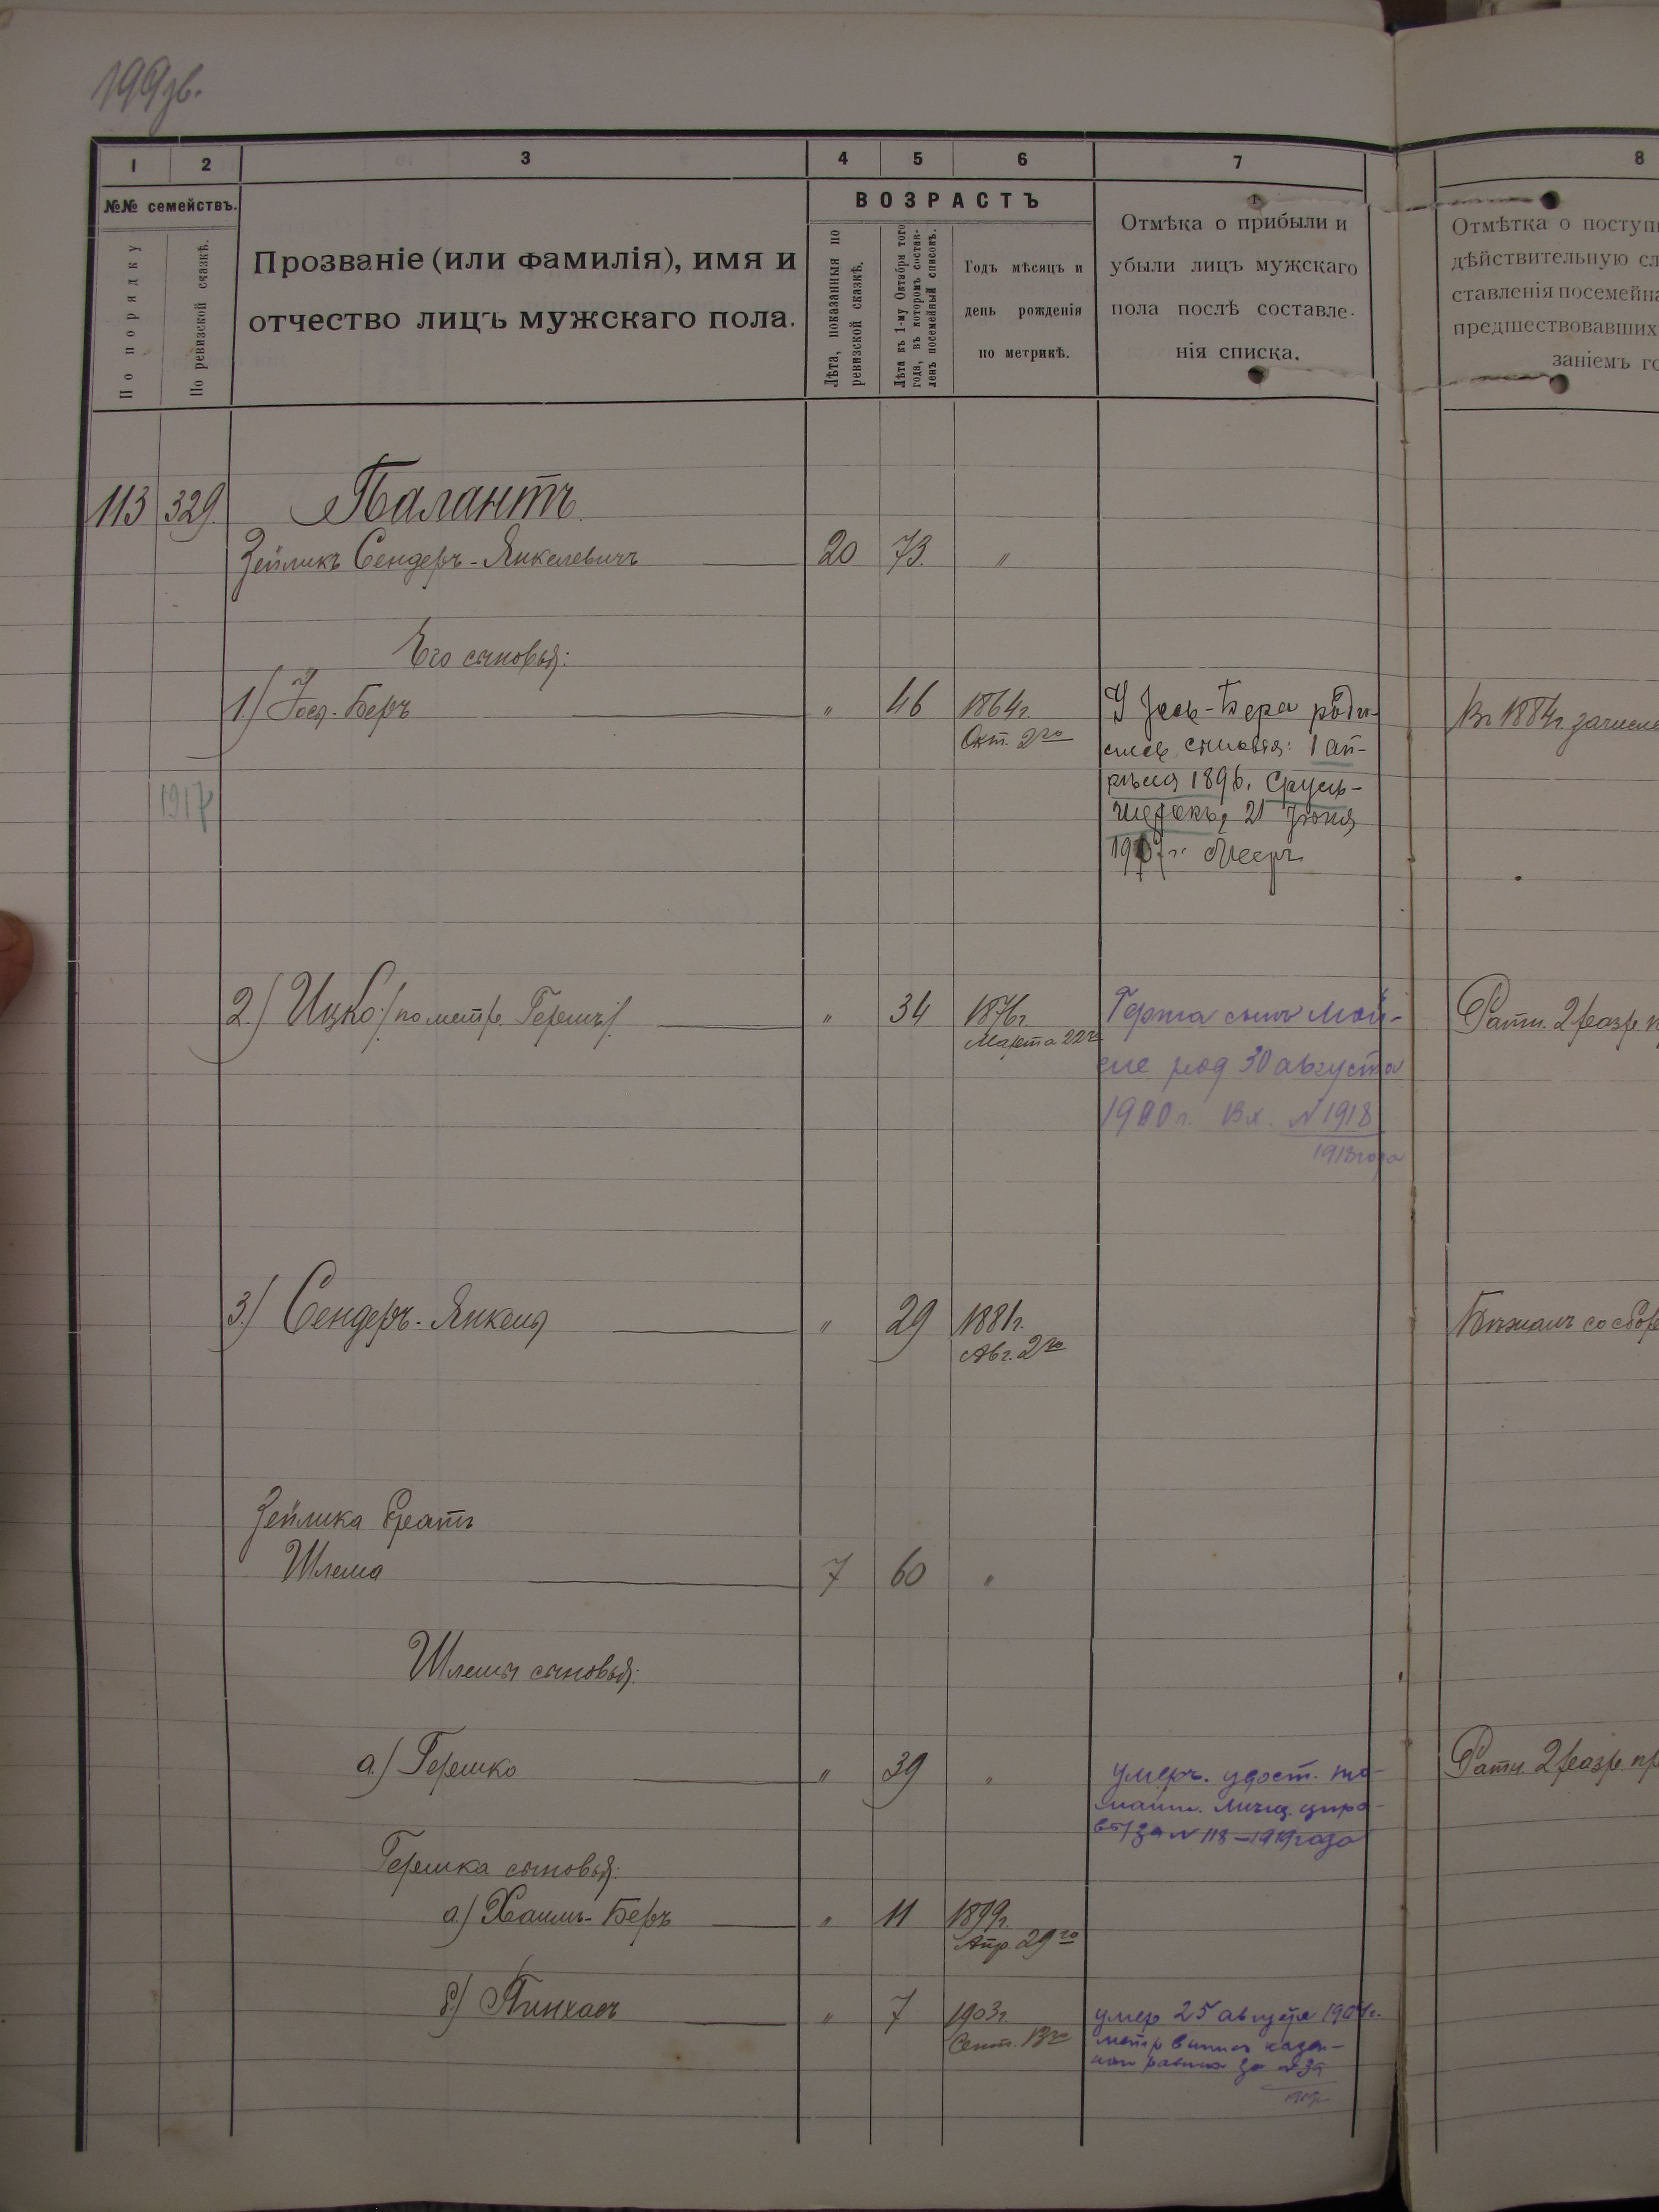 199 об.
1 2 3 4 5 6 7 8
№№ семействъ.
По порядку
По ревизской сказкѣ.
Прозваніе (или фамилія), имя и
отчество лицъ мужскаго пола.
ВОЗРАСТЪ
Лѣта, показанныя по
ревизской сказкѣ.
Лѣта къ 1-му Октября того
года, въ которомъ состав-
ленъ посемейный списокъ.
Годъ мѣсяцъ и
день рожденія
по метрикѣ.
Отмѣка о прибыли и
убыли лицъ мужскаго
пола послѣ составле-
нія списка.
Отмѣтка о поступ
дѣйствительную сл
ставленія посемейна
предшествовавших
заніемъ го
113 329. Палантъ.
Зейликъ Сендеръ-Янкелевичъ 20 73. "
Его сыновья:
1.) Іося-Беръ " 46 1864г.
Окт. 2го
У Іось-Бера роди-
лись сыновья: 1 ап-
рѣля 1896. Сруль-
21 Іюня
Мееръ
В 1884г. зачисле
1917
2.) Ицко /по метр. Гершъ/ " 34 1876г.
Марта 22го
Герша сынъ Мой-
ше род 30 августа
1900г. Вх. №1918
1913года
Ратн. 2 разр.
3.) Сендеръ-Янкель " 29 1881г.
Авг. 2го
Бѣжалъ со сбор
Зейлика братъ
Шлема 7 60 "
Шлемы сыновья:
а.) Гершко " 39 "
умеръ. удост.
за №118-1919года
Ратн. 2 разр. пр
Гершка сыновья:
а.) Хаимъ-Беръ " 11 1899г.
Апр. 29го
б.) Пинхасъ " 7 1903г.
Сент. 13го
умер 25 августа
метр выпись казен-
ного равина за №39